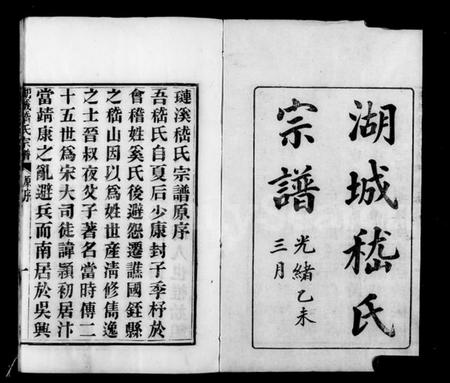 湖城嵇氏
宗譜
光緒乙未
三月
璉溪嵇氏宗譜原序
吾嵇氏自夏后少康封子季杼於
會稽姓奚氏後避怨遷譙國銍縣
之嵇山因以為姓世產清修儁逸
之士晉叔夜父子著名當時傳二
十五世為宋大司徒諱顥初居汴
當靖康之亂避兵而南居於吳興
湖城嵇氏宗譜 原序 一